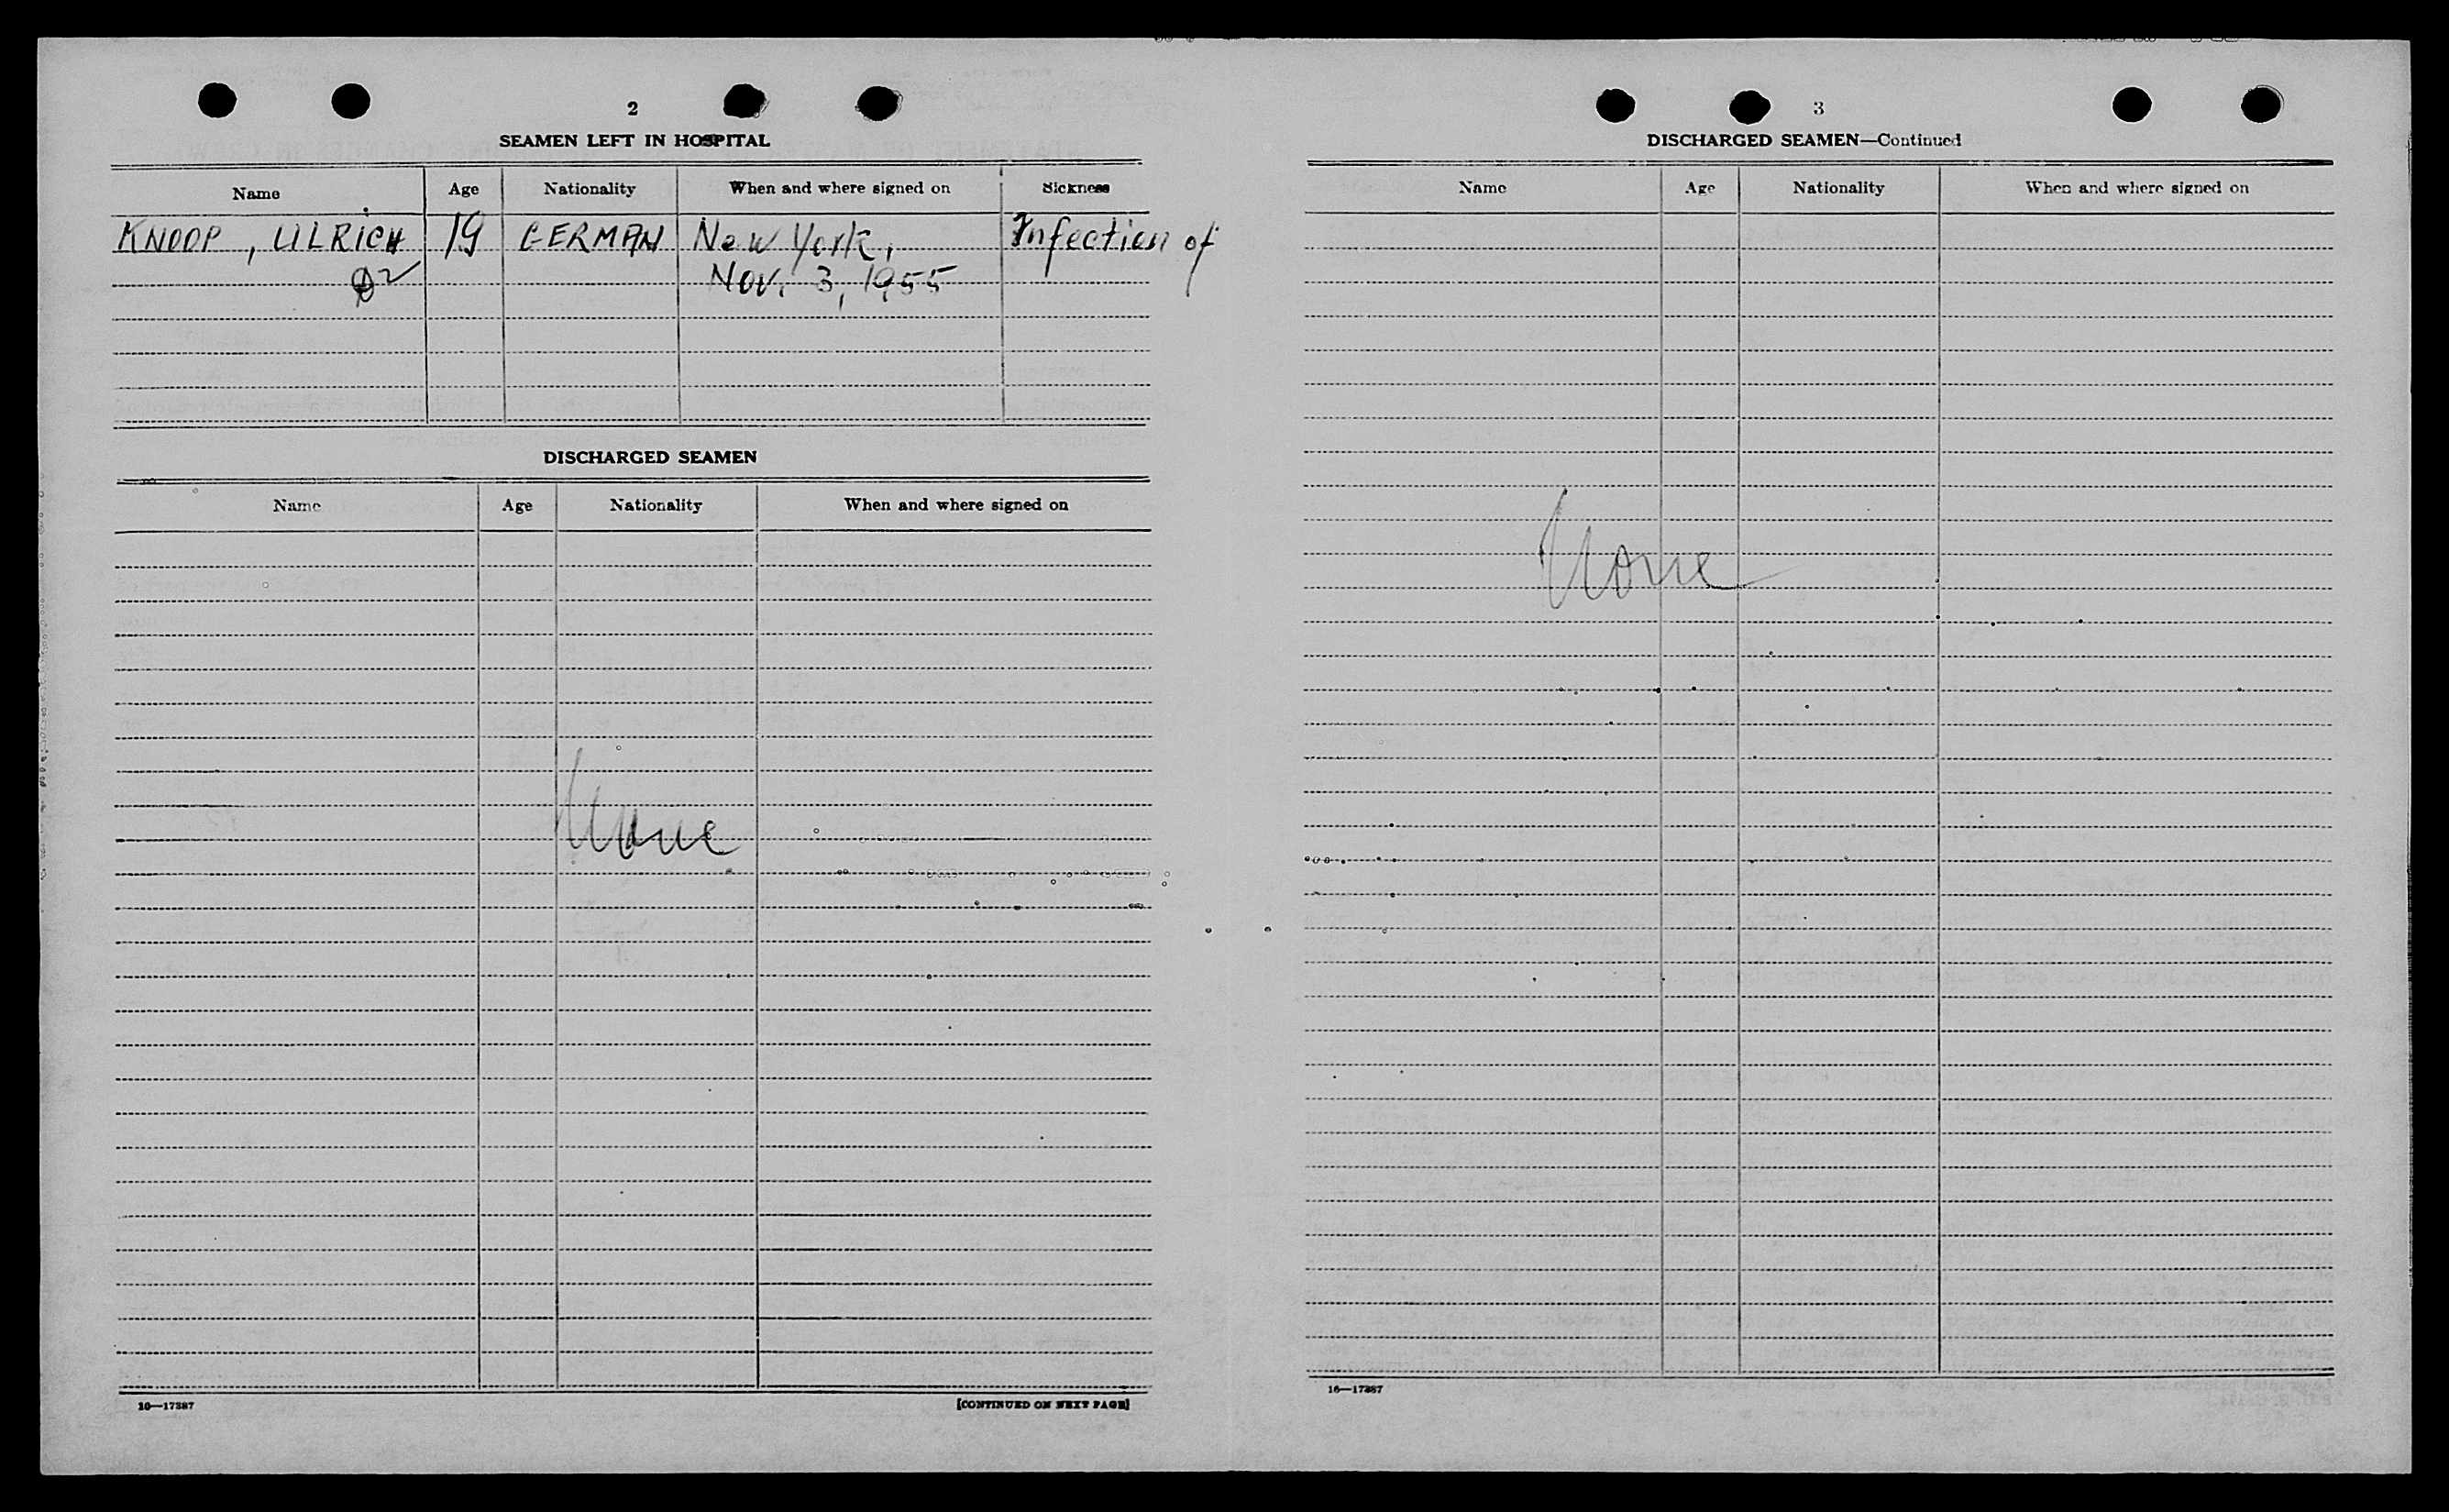 2
SEAMEN LEFT IN HOSPITAL
Name Age Nationality When and where signed on Sickness
KNOOP, ULRICH 19 GERMAN New York, Infection of
Nov. 3, 1955
DISCHARGED SEAMEN
Name Age Nationality When and where signed on
None
16—17387
[CONTINUED ON NEXT PAGE]
3
DISCHARGED SEAMEN—Continued
Name Age Nationality When and where signed on
None
16—17387